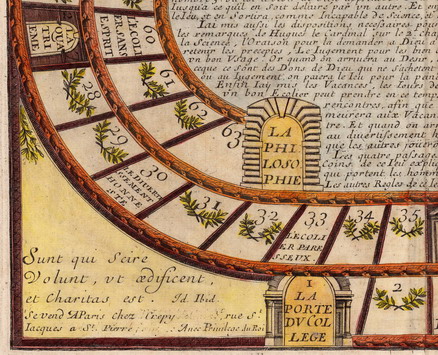 jusqu'a ce qu'il en soit delivré par un autre. Et en
le Jeu, et en Fortuna, comme Incapable de Science.
J'ai mis aussi les dispositions nécessaires pour
les remarques de Hugues le Cardinal sur le 2. chap
la Science, L'Oraison pour la demander a Dieu
retenir les preceptes, Le Jugement pour les bien
vn bon Vsage; Or quand on arrivera au
ce que ce sont des Dons de Dieu, qui ne
ou au Jugement, on paiera le Jeu pour la
Enfin J'ay mis les Vacances, les Jours de
vn bon Ecolier peut prendre en ce temps
rencontres, afin que
meurera aux Vacan
tre. Et quand on ar
au divertissement
que les autres joueront
Les quatre passages
Coins de ce Jeu expli
qui portent les homm
Les autres Regles de ce
LA
QUA
TRI
EME
60
L'ECOLI
ER SANS
ESPRIT
61
62
63
LA
PHI
LOSO
PHIE
28
29
LE DIVERT
ISSEMENT
D'HONNE
STE
30
31
32
33
L'ECOLI
ER PARE
SSEUX.
34
35
1
LA
PORTE
DV COL
LEGE
2
Sunt qui Scire
Volunt, vt ædificent,
et Charitas est. Id. Ibid.
Se vend A Paris chez Crepy rue St.
Jacques a St. Pierre. Avec Privilege du Roi